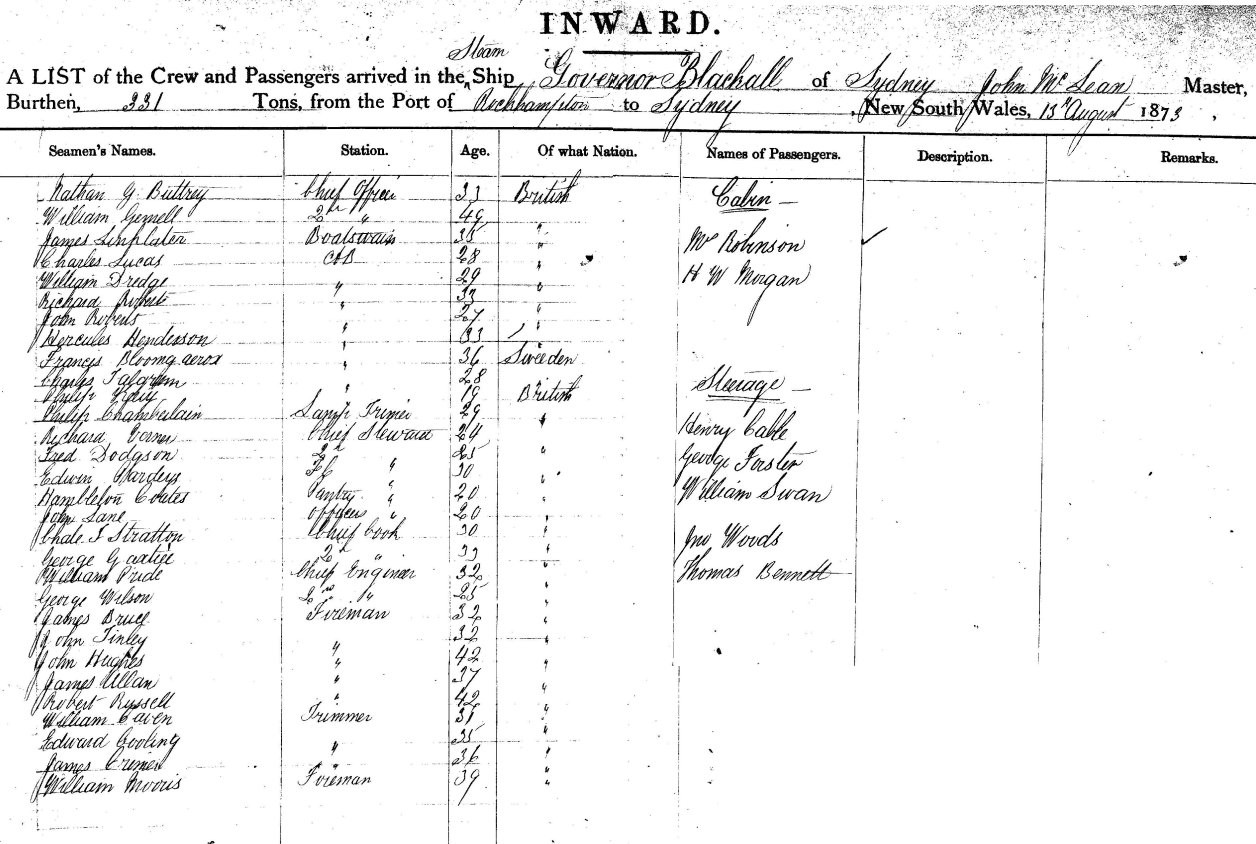 INWARD.
Steam
A LIST of the Crew and Passengers arrived in the Ship Governor Blackall of Sydney John McLean Master,
Burthen, 331 Tons, from the Port of Rockhampton to Sydney, New South Wales, 13th August 1873,
Seamen's Names. Station. Age. Of what Nation. Names of Passengers. Description. Remarks.
Nathan G Buttrey Chief Officer 33 British Cabin —
William Gemell 2nd " 49 "
James Linplater Boatswain 35 " Mr Robinson
Charles Lucas AB 28 "
William Dredge " 29 " H W Morgan
Richard Robert " 33 "
John Roberts " 27 "
Hercules Henderson " 33 "
Francis " 36 Sweden
Charles " 28 Steerage —
Philip 19 British
Philip Chamberlain Lamp Trimer 29 "
Richard Chief Steward 24 " Henry Cable
Fred Dodgson 2nd " 25 "
Edwin " 30 " George Forster
Hamblelon Coates Pantry " 20 " William Swan
John Lane Officers " 20 "
Chale T Stratton Chief Cook 30 " Jno Woods
George 2nd " 33 "
William Pride Chief Engineer 32 " Thomas Bennett
George Wilson 2nd " 25 "
James Bruce Fireman 32 "
John Finley " 32 "
John Hughes " 42 "
James Allan " 37 "
Robert Russell " 42 "
William Caven Trimmer 31 "
Edward Cooling " 35 "
James " 36 "
William Morris Fireman 39 "